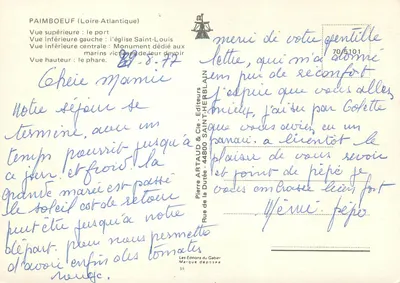 PAIMBOEUF (Loire-Atlantique)
Vue supérieure : le port
Vue inférieure gauche : l'église Saint-Louis
Vue inférieure centrale : Monument dédié aux
marins victimes de leur devoir
Vue hauteur : le phare.
29-8-77
Chère Mamie
Notre séjour se
termine, avec un
temps pourrit jusqu'à
ce jour et froid. la
grande marée est passé
le soleil est de retour
peut être jusqu'a notre
départ. pour nous permettre
d'avoir enfin des tomates
rouge.
Pierre ARTAUD & Cie - Editeurs
Rue de la Durée - 44800 SAINT-HERBLAIN
Les Editions du Gabier
Marque déposée
70/5101
merci de votre gentille
lettre, qui m'a donné
un peu de réconfort
j'espère que vous allez
mieux, j'ai su par Colette
que vous aviez eu un
panari. a bientôt le
plaisir de vous revoir
et point de pépé je
vous embrasse bien fort
Mémé pépé